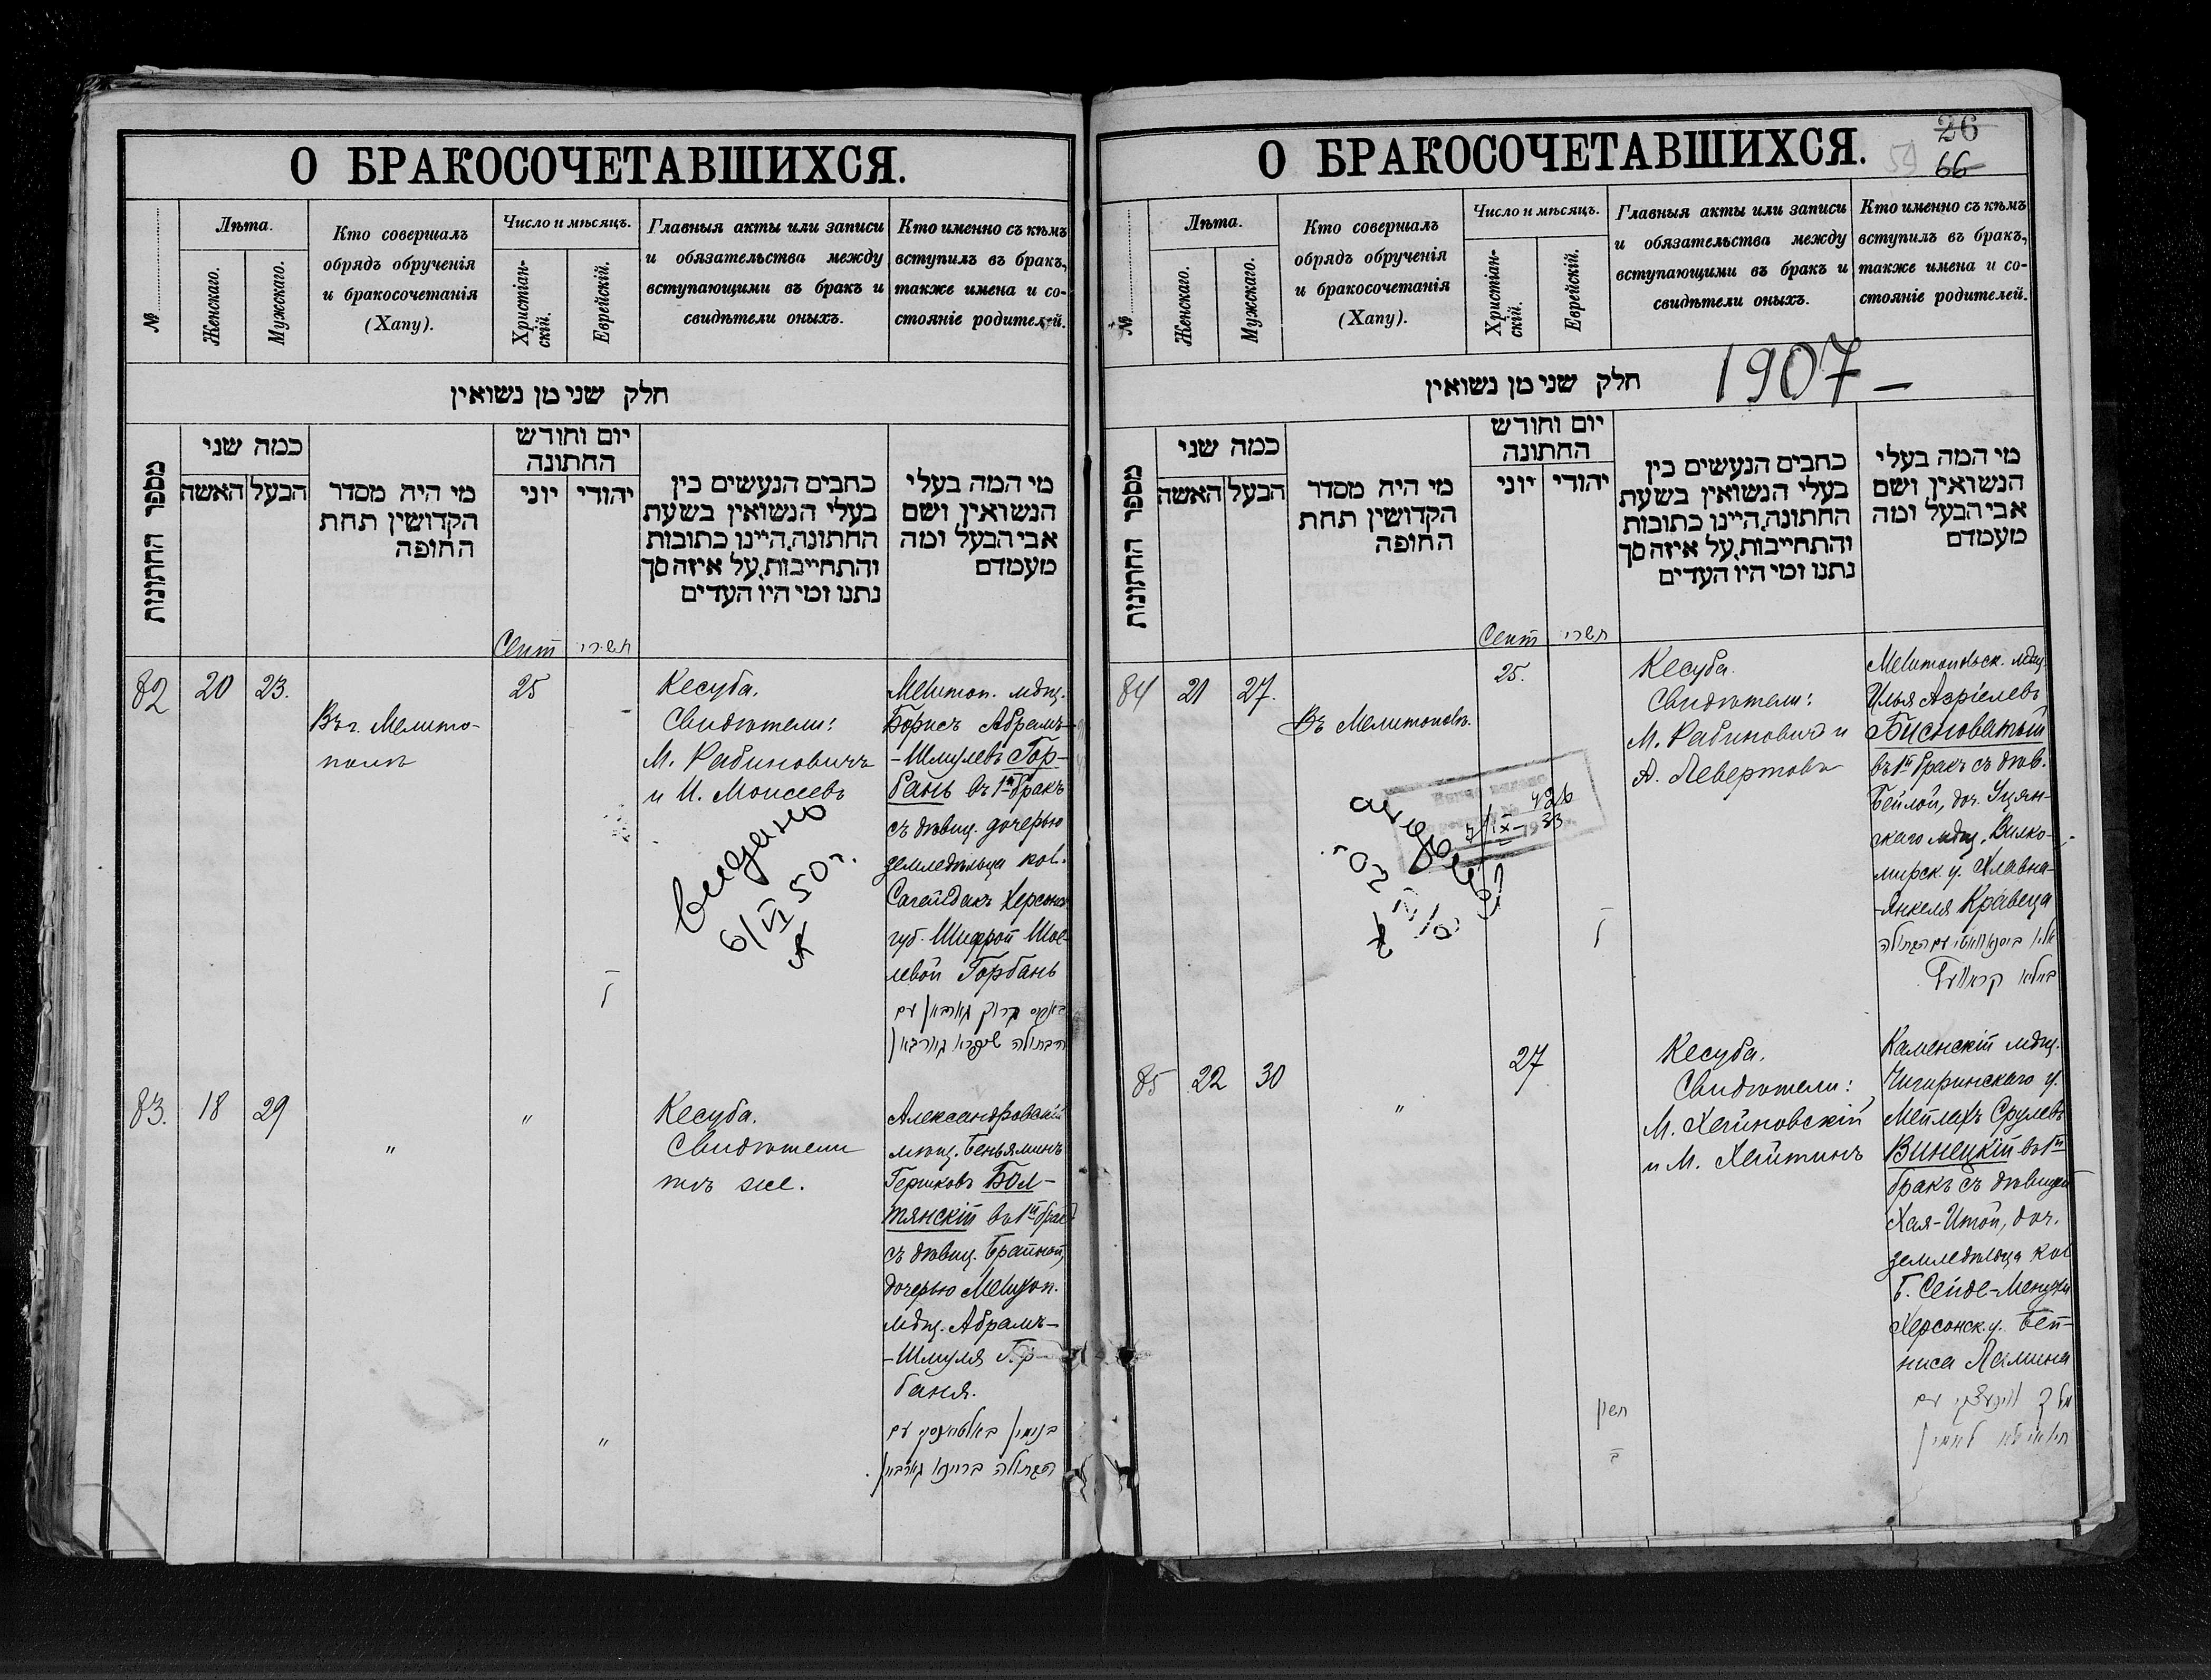 О БРАКОСОЧЕТАВШИХСЯ.
№
Лѣта.
Женскаго.
Мужскаго.
Кто совершалъ
обрядъ обрученія
и бракосочетанія
(Хапу).
Число и мѣсяцъ.
Христіан-
скій.
Еврейскій.
Главныя акты или записи
и обязательства между
вступающими въ бракъ и
свидѣтели оныхъ.
Кто именно съ кѣмъ
вступилъ въ бракъ,
также имена и со-
стояніе родителей.
חלק שני מן נשואין
מספר החתונות
כמה שני
האשה
הבעל
מי היה מסדר
הקדושין תחת
החופה
יום וחודש
החתונה
יוני
יהודי
כתבים הנעשים בין
בעלי הנשואין בשעת
החתונה, היינו כתובות
והתחייבות, על איזה סך
נתנו ומי היו העדים
מי המה בעלי
הנשואין ושם
אבי הבעל ומה
מעמדם
Сент
תשרי
82
20
23.
Въ г. Мелито-
полѣ
25
Кесуба.
Свидѣтели:
М. Рабиновичъ
и И. Моисеевъ
выдано
6/VI 50 г.
Мелитоп. мѣщ.
Борисъ Абрамъ-
-Шмулевъ Гор-
бань въ 1й бракъ
съ дѣвиц. дочерью
земледѣльца кол.
Сагайдакъ Херсонс
губ. Шифрой Шое-
левой Горбань
גארבאן עם
הבתולה שיפרא גארבאן
83.
18
29
"
"
Кесуба.
Свидѣтели
тѣ же.
Александровскій
мѣщ. Беньяминъ
Гершковъ Бол-
тянскій въ 1й бракъ
съ дѣвиц. Брайной,
дочерью Мелитоп.
мѣщ. Абрамъ-
-Шмуля Гор-
баня.
"
בנימין באלטיאנסקי עם
הבתולה בריינא גארבאן
О БРАКОСОЧЕТАВШИХСЯ.
26
59
66
№
Лѣта.
Женскаго.
Мужскаго.
Кто совершалъ
обрядъ обрученія
и бракосочетанія
(Хапу).
Число и мѣсяцъ.
Христіан-
скій.
Еврейскій.
Главныя акты или записи
и обязательства между
вступающими въ бракъ и
свидѣтели оныхъ.
Кто именно съ кѣмъ
вступилъ въ бракъ,
также имена и со-
стояніе родителей.
חלק שני מן נשואין
1907 –
מספר החתונות
כמה שני
האשה
הבעל
מי היה מסדר
הקדושין תחת
החופה
יום וחודש
החתונה
יוני
יהודי
כתבים הנעשים בין
בעלי הנשואין בשעת
החתונה, היינו כתובות
והתחייבות, על איזה סך
נתנו ומי היו העדים
מי המה בעלי
הנשואין ושם
אבי הבעל ומה
מעמדם
Сент
תשרי
84
21
27.
Въ Мелитополѣ.
25.
Кесуба.
Свидѣтели:
М. Рабиновичъ и
А. Левертовъ
Мелитопольск. мѣщ.
Илья Азріелевъ
Бисноватый
въ 1й бракъ съ дѣв.
Бейлой, доч. Уцян-
скаго мѣщ. Вилко-
мирск. у. Хлавна-
-Янкеля Кравеца
ביסנאוואטי עם הבתולה
ביילא קראוועץ
85
22
30
"
27
Кесуба.
Свидѣтели:
М. Хейновскій
и М. Хейтинъ
Каменскій мѣщ.
Чигиринскаго у.
Мейлахъ Срулевъ
Винецкій въ 1й
бракъ съ дѣвицей
Хая-Итой, доч.
земледѣльца кол
Б. Сейде-Менухи
Херсонск. у. Бей-
ниса Ламина
חשון
ב